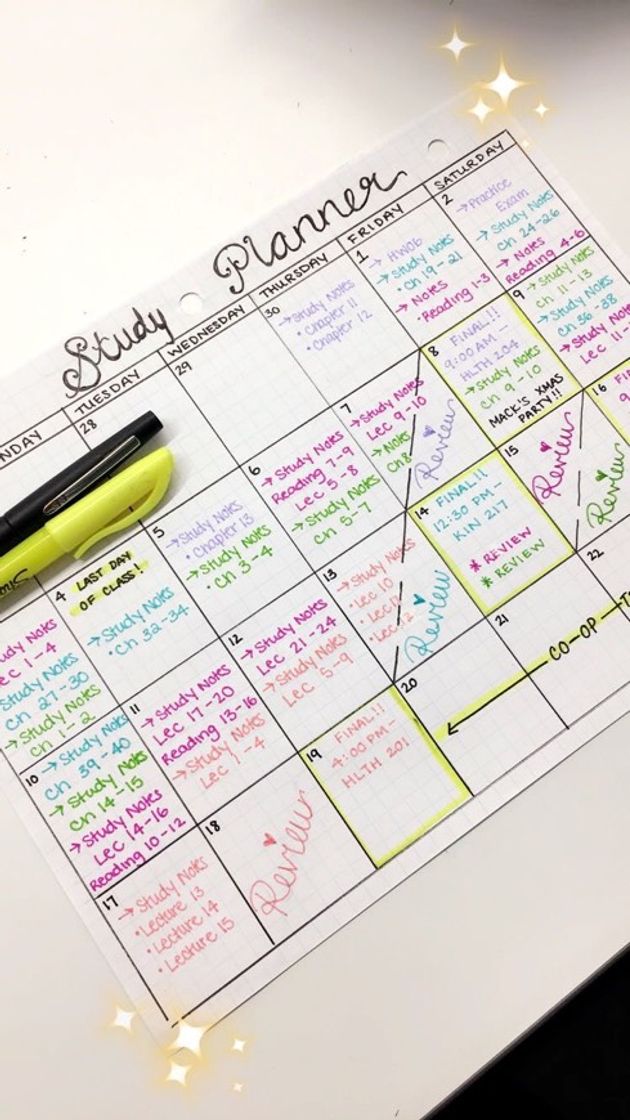 Study Planner
NDAY
TUESDAY
WEDNESDAY
THURSDAY
FRIDAY
SATURDAY
28
29
30
→Study Notes
• Chapter 11
• Chapter 12
1
→ HW06
→Study Notes
• Ch 19-21
→ Notes
• Reading 1-3
2
→Practice
Exam
→Study Notes
Ch 24-26
→ Notes
Reading 4-6
udy Notes
ec 1-4
Study Notes
Ch 27-30
→Study Notes
Ch 1-2
4 LAST DAY
OF CLASS!
→Study Notes
• Ch 32-34
5
→Study Notes
• Chapter 13
→Study Notes
Ch 3-4
6
→ Study Notes
Reading 7-9
Lec 5-8
→ Study Notes
Ch 5-7
7
→Study Notes
Lec 9-10
→Notes
Ch 8
Review
8
FINAL!!
9:00AM –
HLTH 204
→Study Notes
Ch 9-10
MACK'S XMAS
PARTY!!
9
→Study Notes
Ch 11-13
→Study Notes
Ch 36-38
→Study Notes
Lec 11-
10
→Study Notes
Ch 39-40
→ Study Notes
Ch 14-15
→Study Notes
Lec 14-16
Reading 10-12
11
→ Study Notes
Lec 17-20
Reading 13-16
→Study Notes
Lec 1-4
12
→ Study Notes
Lec 21-24
→Study Notes
Lec 5-9
13
→Study Notes
• Lec 10
Review
14
FINAL!!
12:30 PM –
KIN 217
* REVIEW
* REVIEW
15
Review
Review
16
17
→Study Notes
• Lecture 13
• Lecture 14
• Lecture 15
18
Review
19
FINAL!!
4:00PM –
HLTH 201
20
21
22
CO-OP